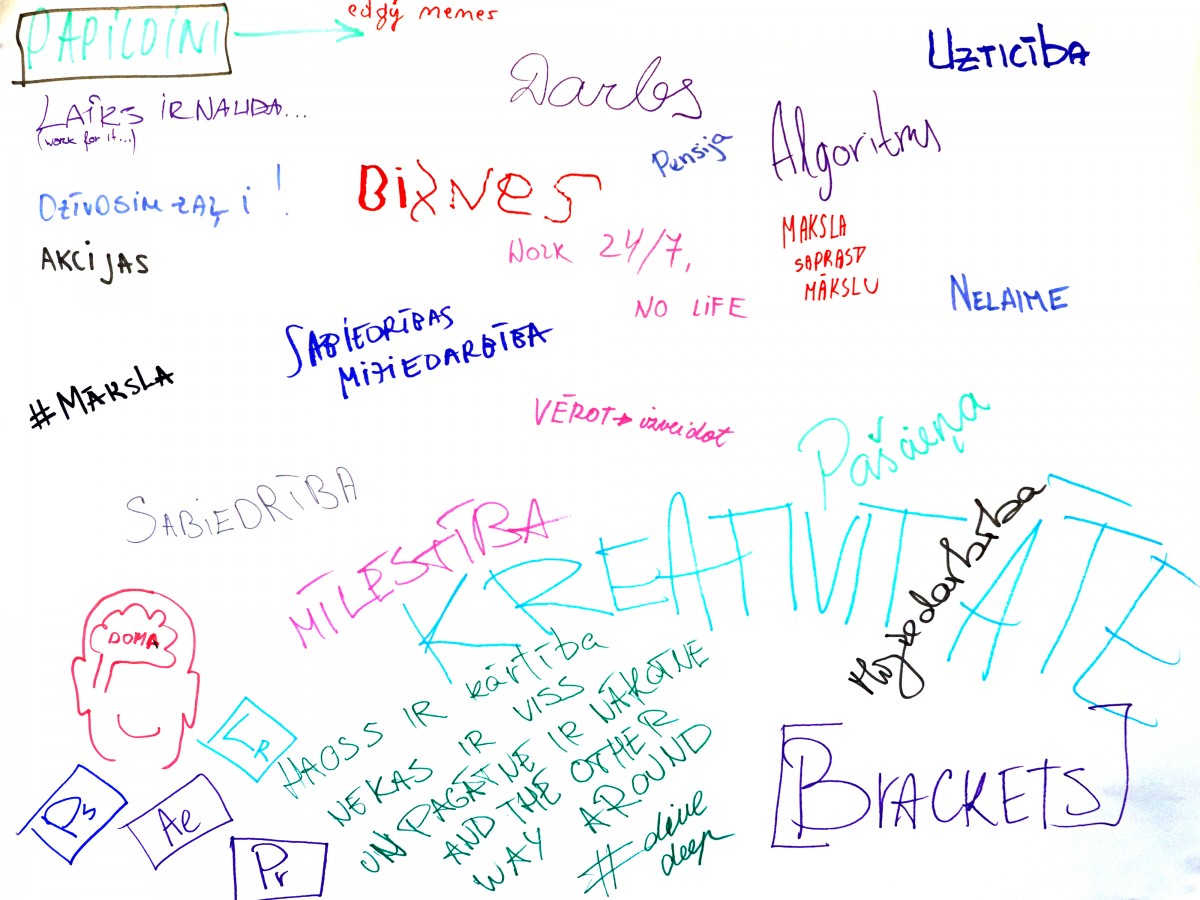 PAPILDINI
edgy memes
UZTICĪBA
LAIKS IR NAUDA...
(work for it...)
Darbs
Algoritms
Pensija
DZĪVOSIM ZAĻI!
BiZNES
AKCIJAS
WORK 24/7,
NO LIFE
MAKSLA
SAPRAST
MĀKSLU
NELAIME
SABIEDRĪBAS
MIJIEDARBĪBA
#MĀKSLA
VĒROT → izveidot
Pašcieņa
SABIEDRĪBA
MĪLESTĪBA
KREATIVITĀTE
Mijiedarbība
DOMA
HAOSS IR kārtība
NEKAS IR VISS
UN PAGĀTNE IR NĀKOTNE
AND THE OTHER
WAY AROUND
#deive
deep
LR
Ps
Ae
Pr
[BRACKETS]